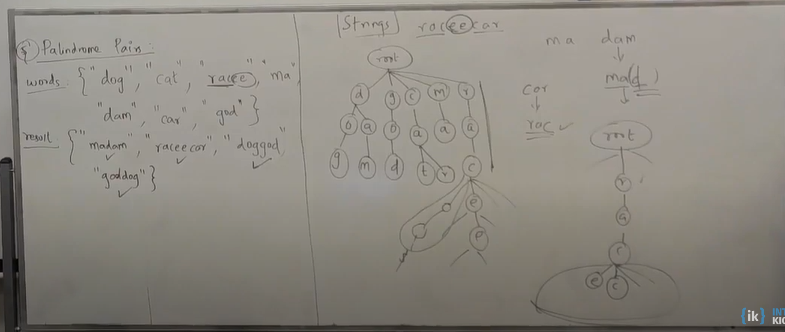 Palindrome Pain:
words: { "dog", "cat", "racee", "ma",
"dam", "car", "god" }
result: { "madam", "raceecar", "doggod"
"goddog" }
Strings
raceecar
root
d g c m r
o a o a a a
g m d t r c
e
e
ma dam
car
rac
root
r
a
c
e c
{ik} INT
KIC